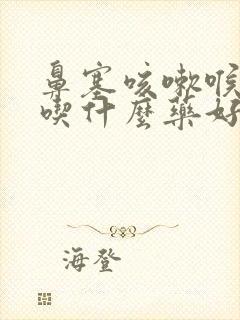 鼻塞咳嗽喉
喫什麼藥好
海登